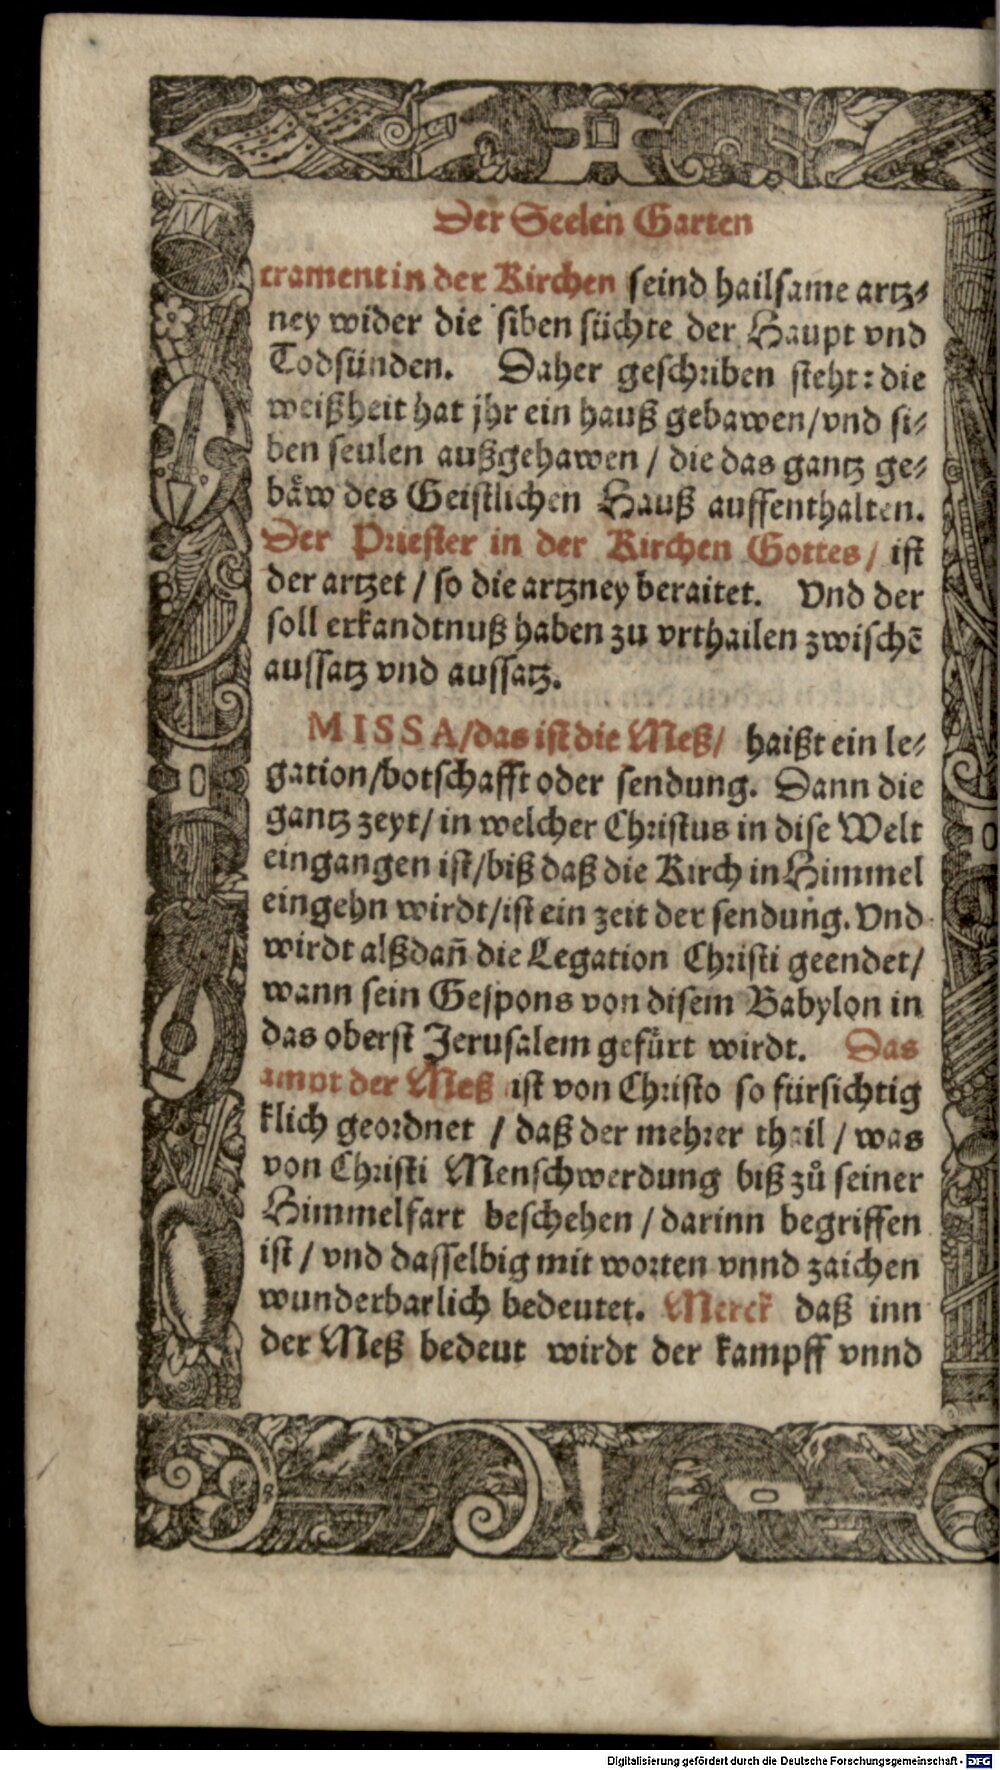 Der Seelen Garten
crament in der Kirchen seind hailsame artz⸗
ney wider die siben süchte der Haupt vnd
Todsünden. Daher geschriben steht: die
weißheit hat jhr ein hauß gebawen/vnd si⸗
ben seulen außgehawen / die das gantz ge⸗
bäw des Geistlichen Hauß auffenthalten.
Der Priester in der Kirchen Gottes/ ist
der artzet / so die artzney beraitet. Vnd der
soll erkandtnuß haben zu vrthailen zwischē
aussatz vnd aussatz.
MISSA/das ist die Meß/ haißt ein le⸗
gation/botschafft oder sendung. Dann die
gantz zeyt/ in welcher Christus in dise Welt
eingangen ist/biß daß die Kirch in Himmel
eingehn wirdt/ist ein zeit der sendung. Vnd
wirdt alßdañ die Legation Christi geendet/
wann sein Gespons von disem Babylon in
das oberst Jerusalem gefürt wirdt. Das
ampt der Meß ist von Christo so fürsichtig
klich geordnet / daß der mehrer thail / was
von Christi Menschwerdung biß zů seiner
Himmelfart beschehen / darinn begriffen
ist / vnd dasselbig mit worten vnnd zaichen
wunderbarlich bedeutet. Merck daß inn
der Meß bedeut wirdt der kampff vnnd
Digitalisierung gefördert durch die Deutsche Forschungsgemeinschaft - DFG